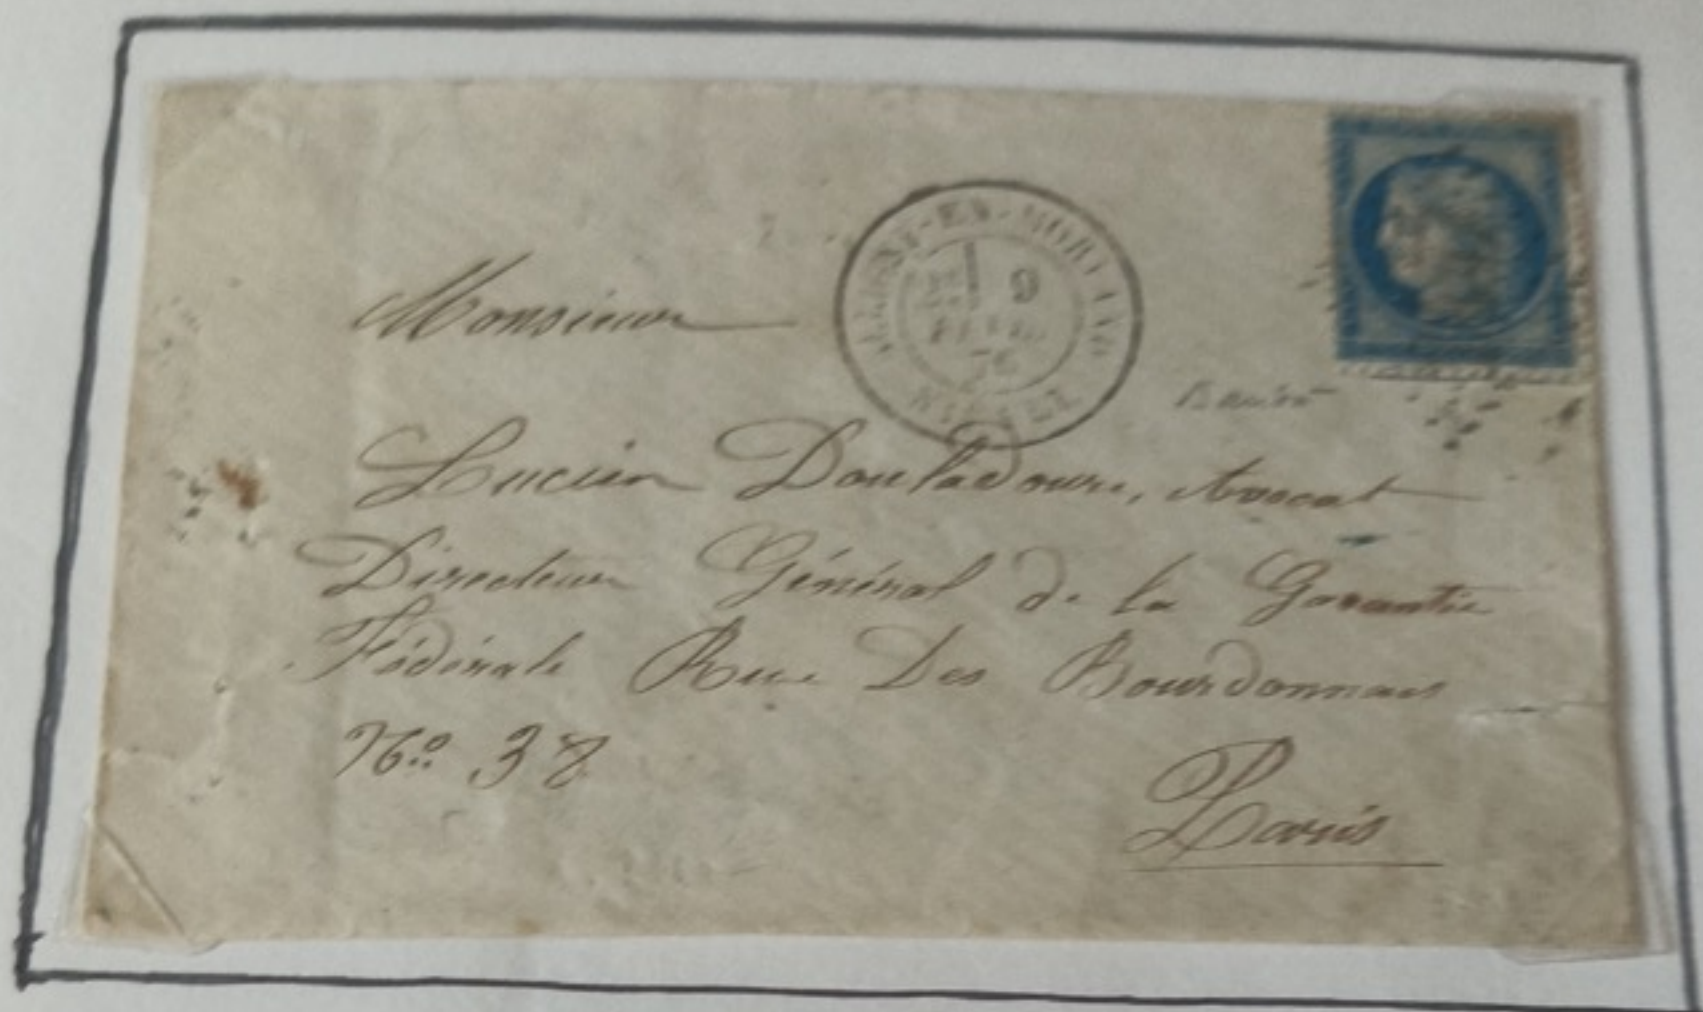 9
76
Monsieur
Lucien Douladoure, Avocat
Directeur Général de la Garantie
Fédérale Rue Des Bourdonnais
No. 38
Paris